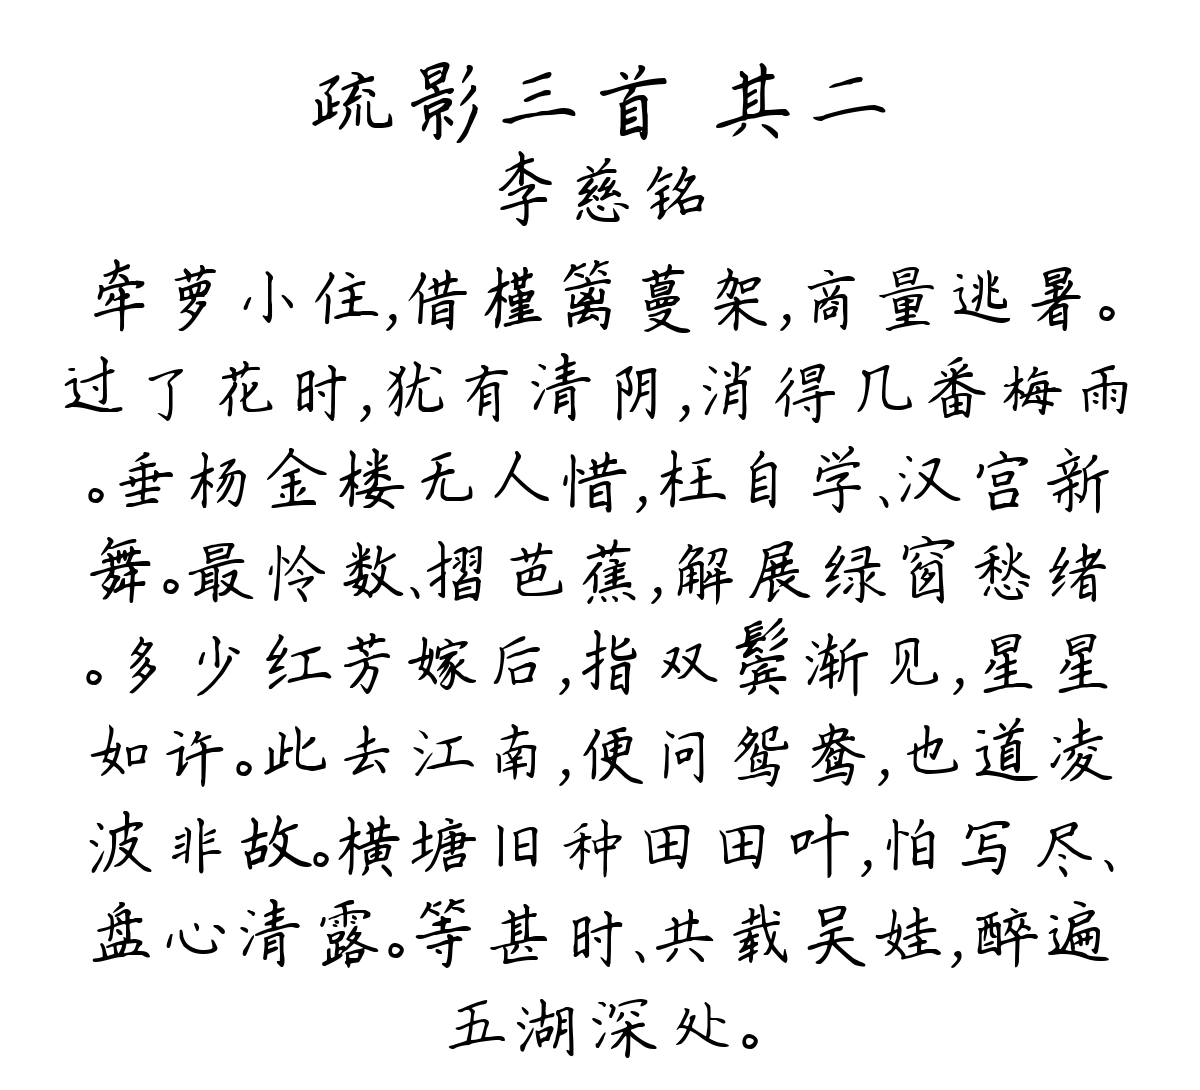 疏影三首 其二
李慈铭
牵萝小住,借槿篱蔓架,商量逃暑。
过了花时,犹有清阴,消得几番梅雨
。垂杨金楼无人惜,枉自学、汉宫新
舞。最怜数、摺芭蕉,解展绿窗愁绪
。多少红芳嫁后,指双鬓渐见,星星
如许。此去江南,便问鸳鸯,也道凌
波非故。横塘旧种田田叶,怕写尽、
盘心清露。等甚时、共载吴娃,醉遍
五湖深处。